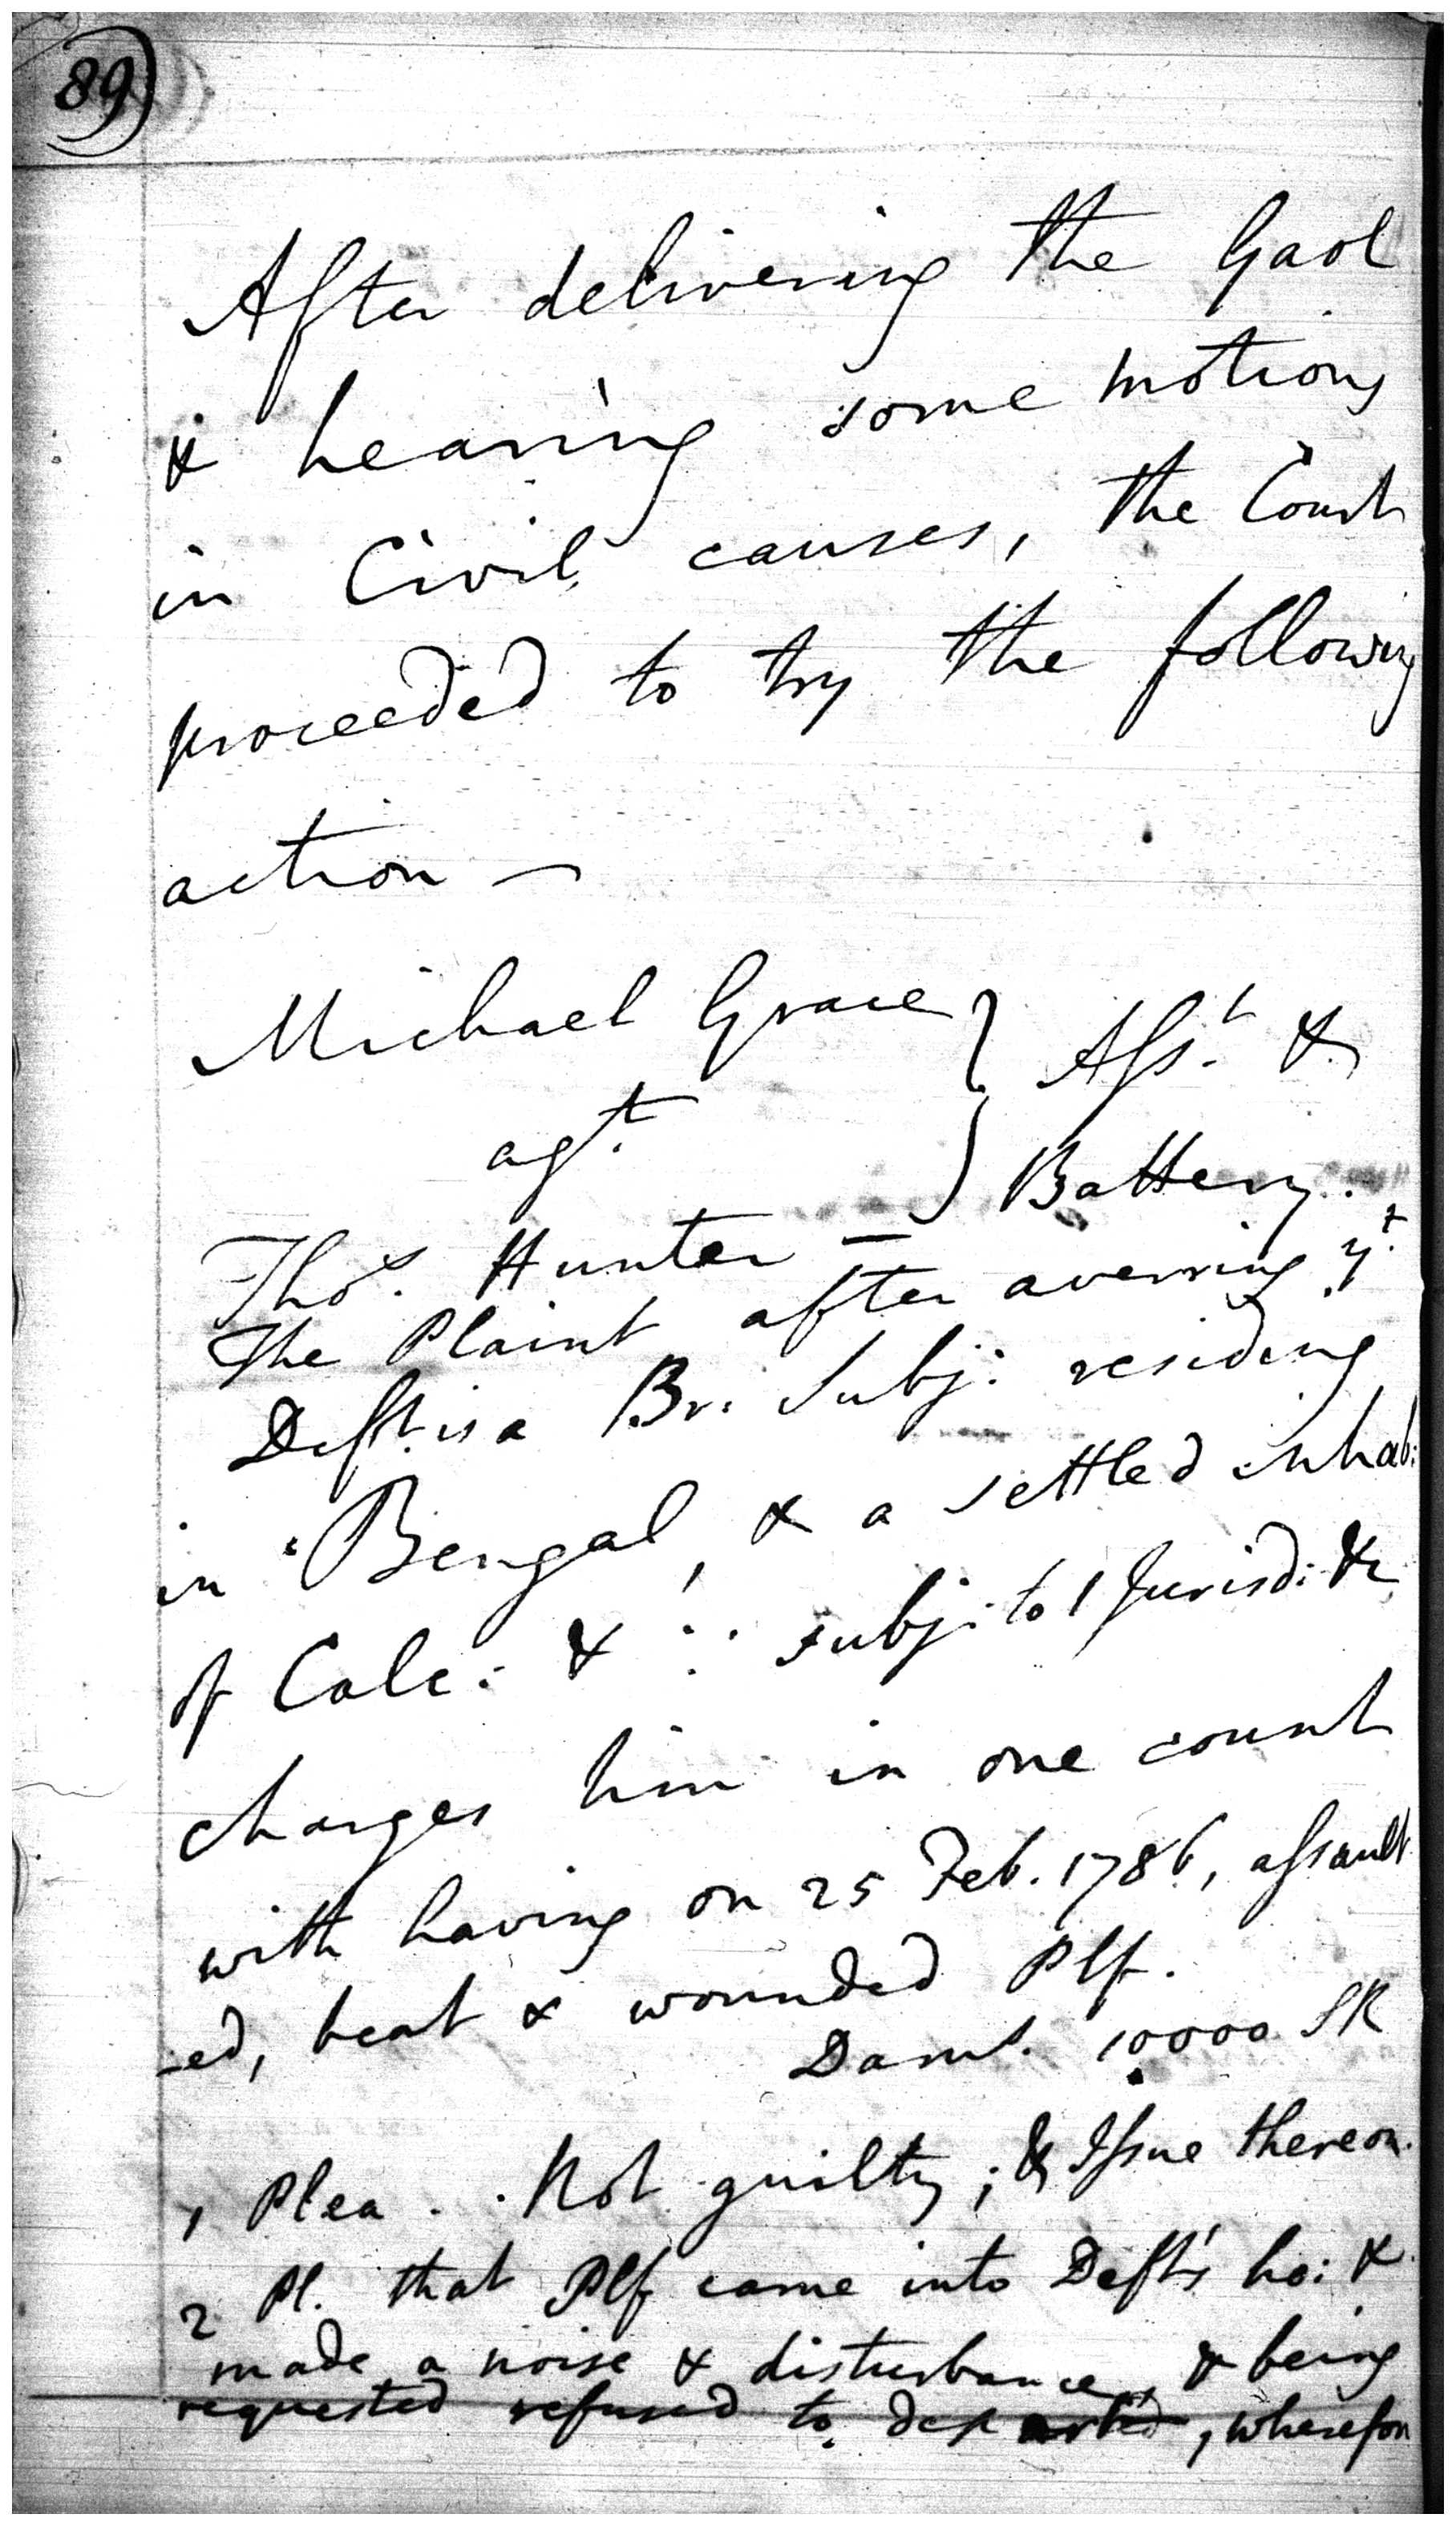 89
After delivering the Gaol
& hearing some motions
in Civil causes, the Court
proceeded to try the following
action —
Michael Grace } Asst. &
agt. } Battery.
Thos. Hunter —
The Plaint after averring yt.
Deft. is a Br. Subj: residing
in Bengal, & a settled inhab:
of Calc: & ∴ subj: to / Jurisd: &c
charges him in one count
with having on 25 Feb. 1786, assault
-ed, beat & wounded Plf.
Dams. 10000 SR
1 Plea . . Not guilty; & Issue thereon.
2 Pl. that Plf came into Deft's ho: &
made a noise & disturbance, & being
requested refused to depart, wherefore